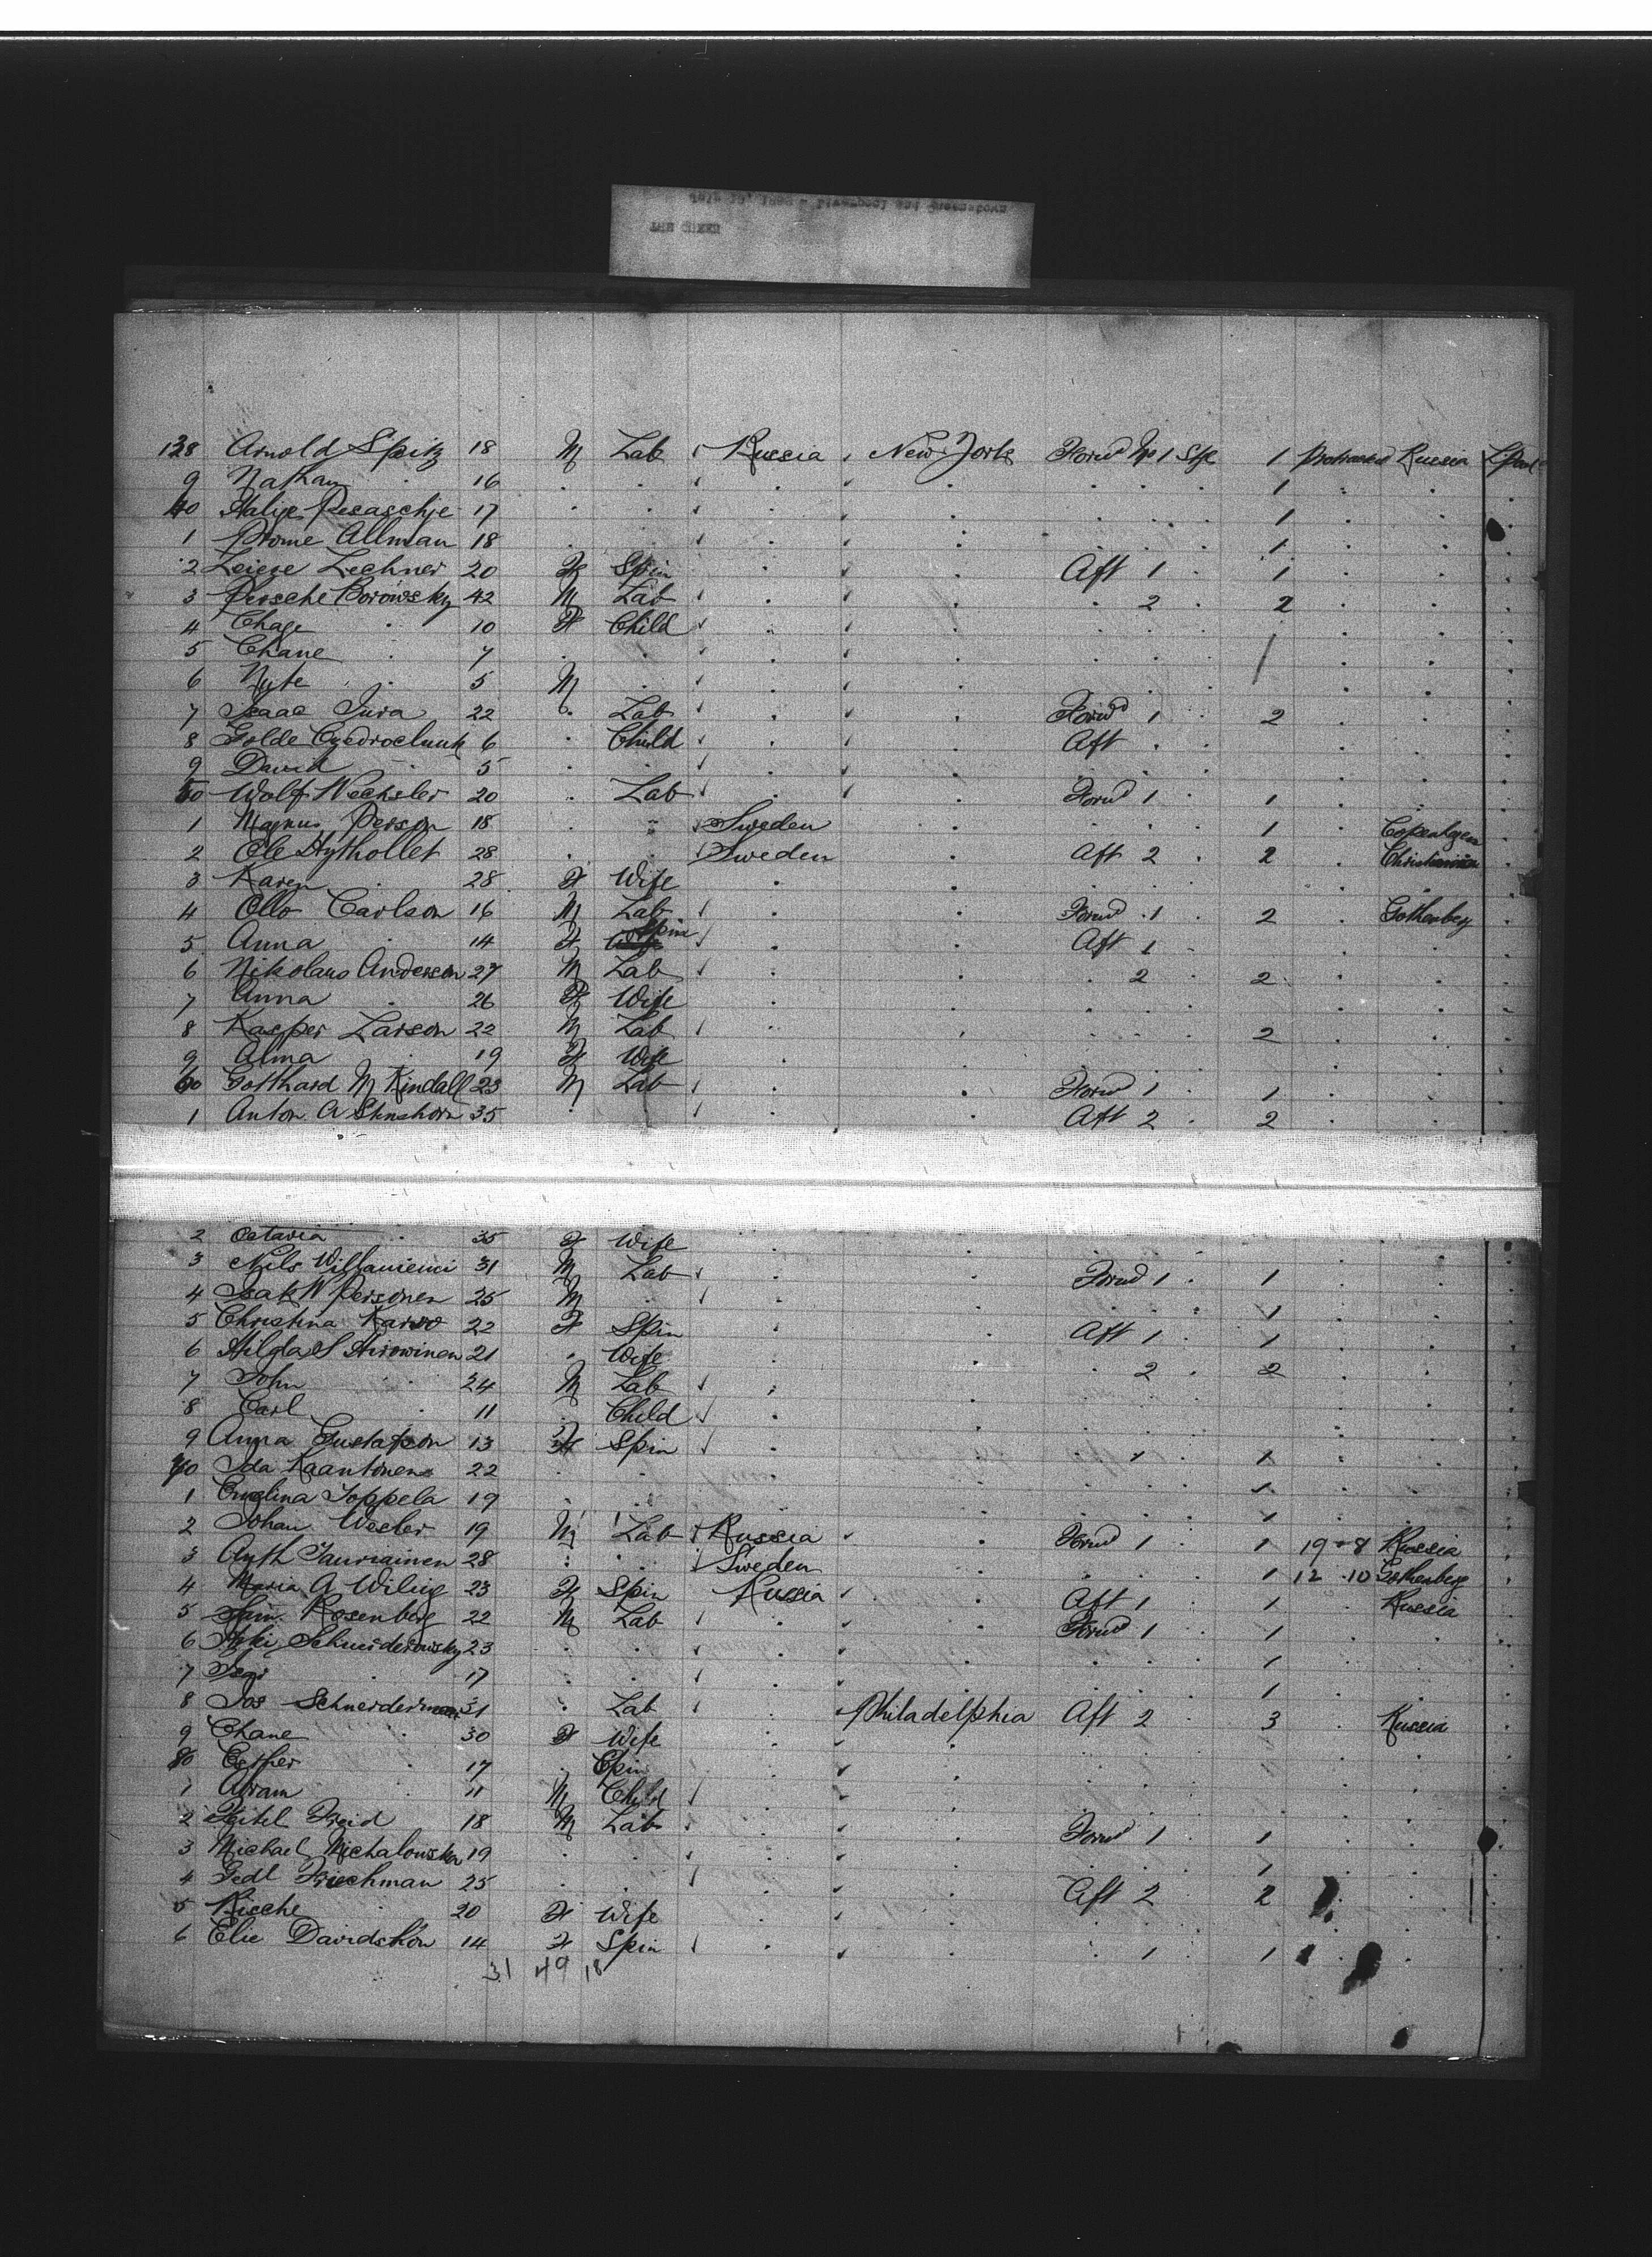 138 Arnold Spitz 18 M Lab Russia New York Forwd No 1 Stge 1 Protracted Russia L'Pool
9 Nathan 16 1
40 Halije Pesaschje 17 1
1 Allman 18 1
2 Leiere Lechner 20 F Spin Aft 1 1
3 Persche Borowsky 42 M Lab 2 2
4 Chage 10 F Child
5 Chane 7
6 Nute 5 M
7 Isaac Jura 22 Lab Forwd 1 2
8 Golde 6 Child Aft
9 David 5
50 Wolf Wechsler 20 Lab Forwd 1 1
1 Magnus Person 18 Sweden 1 Copenhgen
2 Ole Hythollet 28 Sweden Aft 2 2 Christiania
3 Karen 28 F Wife
4 Ollo Carlson 16 M Lab Forwd 1 2 Gothenberg
5 Anna 14 F Spin Aft 1
6 Nikolaus Anderson 27 M Lab 2 2
7 Anna 26 F Wife
8 Kasper Larson 22 M Lab 2
9 Alma 19 F Wife
60 Gotthard M Kindall 23 M Lab Forwd 1 1
1 Anton A 35 Aft 2 2
2 Octavia 35 F Wife
3 Nils Willaniemi 31 M Lab Forwd 1 1
4 Isak W Personen 25 M 1
5 Christina Karvo 22 F Spin Aft 1 1
6 Hilda S Hirowinen 21 Wife 2 2
7 John 24 M Lab
8 Carl 11 Child
9 Anna Gustafson 13 F Spin 1 1
70 Ida Kaantonen 22 1
1 Evelina Joppela 19 1
2 Johan Wesler 19 M Lab Russia Forwd 1 1 19 8 Russia
3 Anth Tauriainen 28 Sweden 1 12 10 Gothenberg
4 Maria A Wiling 23 F Spin Russia Aft 1 1 Russia
5 Sam. Rosenberg 22 M Lab Forwd 1 1
6 Schneiderowsky 23 1
7 17 1
8 Jos Schneiderman 31 Lab Philadelphia Aft 2 3 Russia
9 Chane 30 F Wife
80 Esther 17 Spin
1 Abram 11 M Child
2 Feitel Freid 18 M Lab Forwd 1 1
3 Michael Michalowska 19 1
4 Gedl Friechman 25 Aft 2 2
5 Rische 20 F Wife
6 Elie Davidshon 14 F Spin 1 1
31 49 18